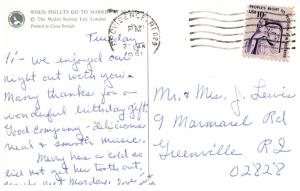 WHEN PIGLETS GO TO MARKET
© The Medici Society Ltd. London
Printed in Great Britain
Tuesday
Hi - We enjoyed our
night out with you.
Many thanks for a
wonderful birthday gift.
Good company - delicious
meal & smooth music.
Mary has a cold so
did not get her tooth out,
Monday. Love
PROVIDENCE, RI 029
PM
1981
USA 10c
Mr. & Mrs. J Lewis
9 Marmarel Rd
Greenville R I
02828